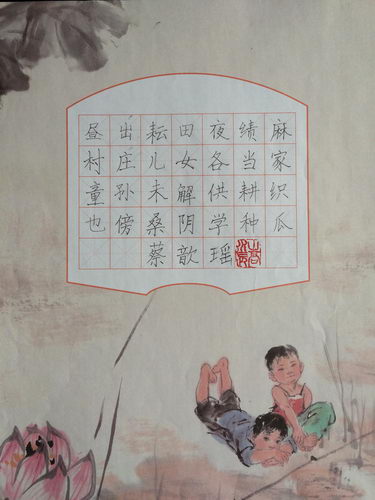 昼出耘田夜绩麻
村庄儿女各当家
童孙未解供耕织
也傍桑阴学种瓜
蔡歆瑶